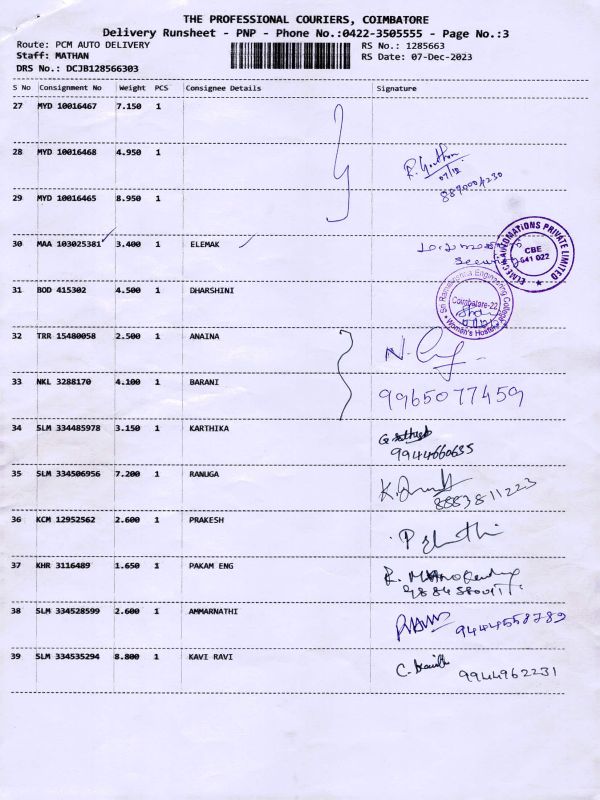 THE PROFESSIONAL COURIERS, COIMBATORE
Delivery Runsheet - PNP - Phone No.:0422-3505555 - Page No.:3
Route: PCM AUTO DELIVERY RS No.: 1285663
Staff: MATHAN RS Date: 07-Dec-2023
DRS No.: DCJB128566303
S No Consignment No Weight PCS Consignee Details Signature
27 MYD 10016467 7.150 1
28 MYD 10016468 4.950 1
07/12
29 MYD 10016465 8.950 1
30 MAA 103025381 3.400 1 ELEMAK
AUTOMATIONS PRIVATE LIMITED
CBE
641 022
31 BOD 415302 4.500 1 DHARSHINI
Sri Ramakrishna Engineering College
Coimbatore-22
Women's Hostel
32 TRR 15480058 2.500 1 ANAINA
33 NKL 3288170 4.100 1 BARANI
9965077459
34 SLM 334485978 3.150 1 KARTHIKA
9944660635
35 SLM 334506956 7.200 1 RANUGA
8883811223
36 KCM 12952562 2.600 1 PRAKESH
37 KHR 3116489 1.650 1 PAKAM ENG
38 SLM 334528599 2.600 1 AMMARNATHI
9444558789
39 SLM 334535294 8.800 1 KAVI RAVI
9944962231